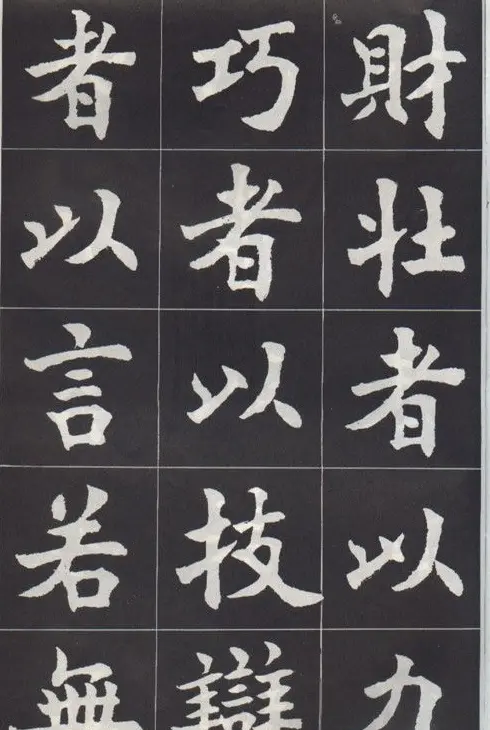 財壮者以力
巧者以技辯
者以言若無